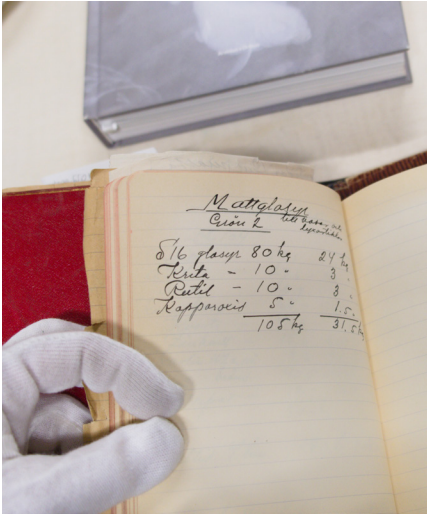 Mattglasyr
Grön 2 till vaser och
516 glasyr 80 kg 24 kg
Krita – 10 " 3 "
Rutil – 10 " 3 "
Kopparoxis 5 " 1.5 "
105 kg 31,5 kg